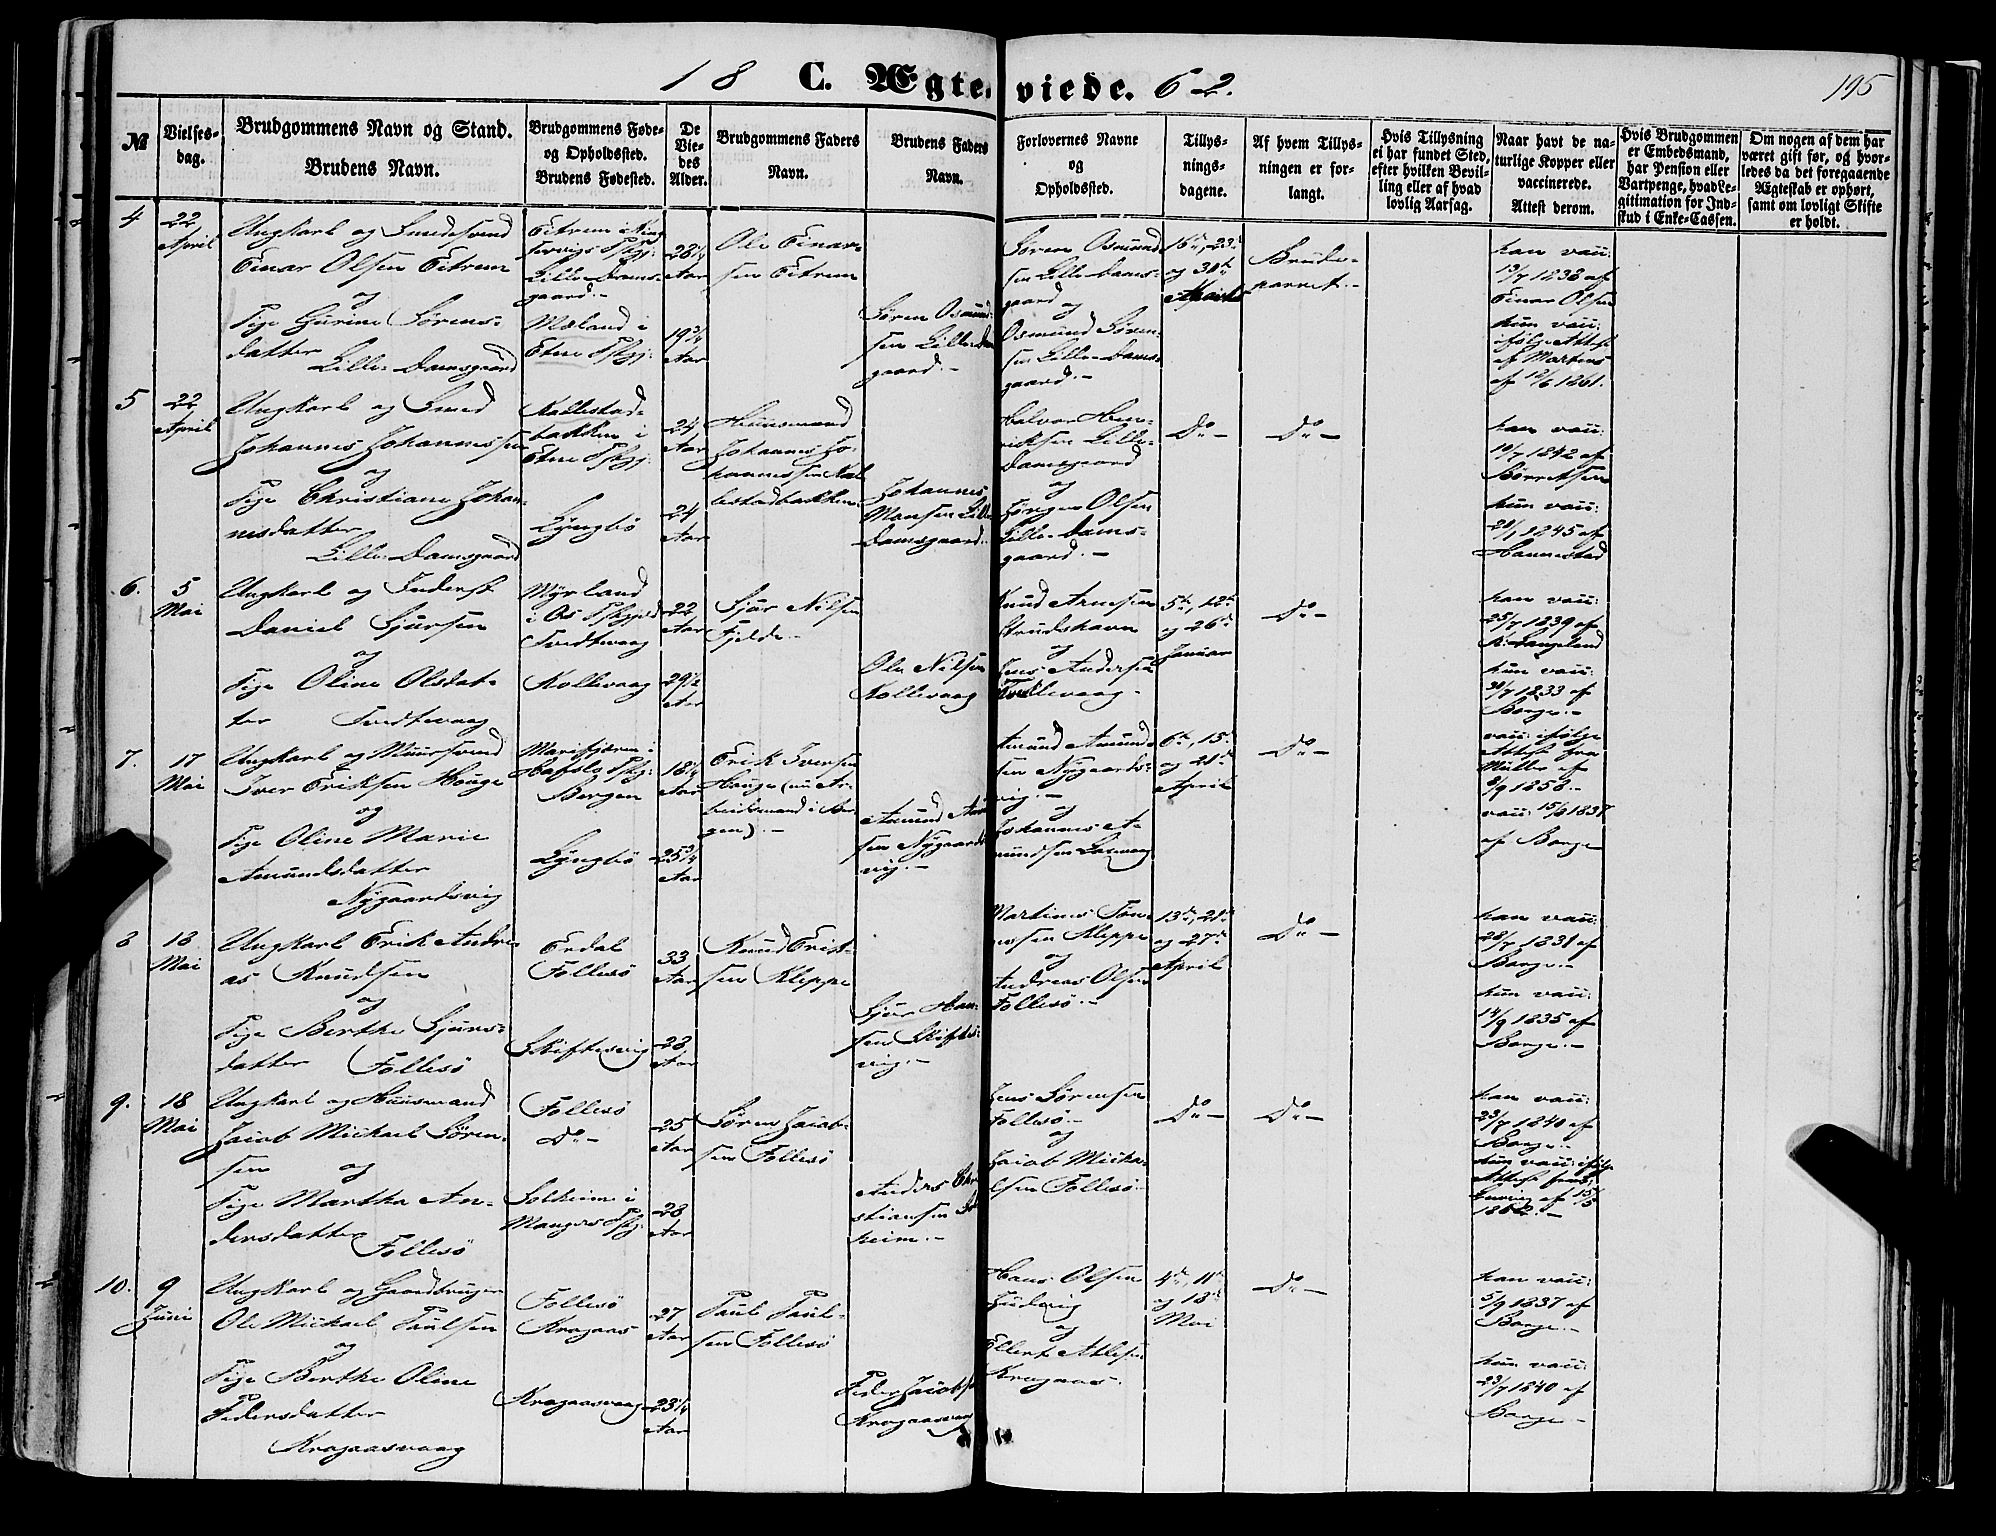 18 C. Ægteviede. 62.
195
№
Vielses-
dag.
Brudgommens Navn og Stand.
Brudens Navn.
Brudgommens Føde-
og Opholdssted.
Brudens Fødested.
De
Vie-
des
Alder.
Brudgommens Faders
Navn.
Brudens Faders
Navn.
Forlovernes Navne
og
Opholdssted.
Tillys-
nings-
dagene.
Af hvem Tillys-
ningen er for-
langt.
Hvis Tillysning
ei har fundet Sted,
efter hvilken Bevil-
ling eller af hvad
lovlig Aarsag.
Naar havt de na-
turlige Kopper eller
vaccinerede.
Attest derom.
Hvis Brudgommen
er Embedsmand,
har Pension eller
Vartpenge, hvad Le-
gitimation for Ind-
skud i Enke-Cassen.
Om nogen af dem har
været gift før, og hvor-
ledes da det foregaaende
Ægteskab er ophørt,
samt om lovligt Skifte
er holdt.
4
22
April
Ungkarl og Smedesvend
Einar Olsen Eitrem
og
Pige Gurine Sørens-
datter
Lille-Damsgaard
Eitrem i
Lille-Dams-
gaard.-
Mæland i
Etne Pstgj:
28 1/4
Aar
19 3/4
Aar
Ole Einar-
sen Eitrem
Søren Osmund-
sen Lille-Dam
gaard.-
Søren Osmund-
sen Lille-Dams-
gaard
og
Osmund Søren-
sen Lille-Dams-
gaard.-
og 30te
Brude-
parret.-
han vacc:
13/7 1838 af
Einar Olsen
hun vacc:
ifølge Attest
af Martens
af 12/6 1861.
5
22
April
Ungkarl og Smed
Johannes Johannessen
og
Pige Christiane Johan-
nesdatter
Lille-Damsgaard
bakken i
Etne Pstgj:
Lyngbö
24
Aar
24
Aar
Huusmand
Johannes Jo-
hannessen Kal-
lestadbakken.
Johannes
Monsen Lille
Damsgaard.
Halvor Hen-
riksen Lille-
Damsgaard
og
Jørgen Olsen
Lille-Dams-
gaard.-
Do-
Do-
han vacc:
19/7 1842 af
Børretsen
hun vacc:
21/1 1845 af
Hannestad
6.
5
Mai
Ungkarl og Inderst
Daniel Sjursen
og
Pige Oline Olsdat-
ter Tvedtevaag
Myrland
i Os Pstgjeld
Tvedtevaag
Kollevaag
22
Aar
29 1/2
Aar
Sjur Nilsen
Fjelde-
Ole Nilsen
Kollevaag
Knud Arnesen
Strudshavn
og
Jens Andersen
5te, 12te
og 26de
Januar
Do-
han vacc:
25/7 1839 af
K. Langeland
hun vacc:
30/7 1833 af
Borge.-
7.
17
Mai
Ungkarl og Muursvend
Iver Eriksen Houge
og
Pige Oline Marie
Amundsdatter
Nygaardsvig
Marifjæren i
Hafslo Pstgj:
Bergen
Lyngbö
18 1/4
Aar
25 3/4
Aar
Erik Iversen
Houge (nu Ar-
beidsmand i Ber-
gen).-
Amund
sen Nygaards
vig.-
Amund Amund-
sen Nygaards-
vig.-
og
Johannes A-
mundsen
6te, 15de
og 21de
April
Do-
vacc: ifølge
Attest fra
Müller af
8/9 1858.-
vacc: 15/9 1837
af Borge
8
18
Mai
Ungkarl Erik Andre-
as Knudsen
og
Pige Berthe Sjurs-
datter Follesö
Erdal
Follesö
Skiftesvig
33
Aar
28
Aar
Knud Erik-
sen Kleppe
Sjur Han-
sen Skiftes-
vig.-
Martinus
Kleppe
og
Andreas Olsen
Follesö.-
13de, 21de
og 27de
April
Do-
han vacc:
28/7 1831 af
Borge.-
hun vacc:
14/9 1835 af
Borge.-
9.
18
Mai
Ungkarl og Huusmand
Jacob Mickael Sören-
sen og
Pige Martha An-
dersdatter
Follesö
Follesö
Do-
Solheim i
Mangers Pstgj:
25
Aar
28
Aar
Sören Jacob-
sen Follesö
Anders Chri
stiansen Sol
heim.-
Jens Sörensen
Follesö.-
og
Jacob Micka-
elsen Follesö.-
Do-
Do-
han vacc:
23/7 1840 af
Borge.-
hun vacc: ifølge
Attest fra
1862.-
10.
9
Juni
Ungkarl og Gaardbruger
Ole Mickael Paulsen
og
Pige Berthe Oline
Pedersdatter
Kragaasvaag
Follesö
Kragaas
Kragaasvaag
27
Aar
23 1/4
Aar
Paul Paul-
sen Follesö
Peder Jacobs
Kragaasvaag
Hans Olsen
og
Ellert Atlesen
Kragaas.
4de, 11te
og 18de
Mai
Do-
han vacc:
5/9 1837 af
Borge.-
hun vacc:
23/7 1840 af
Borge-